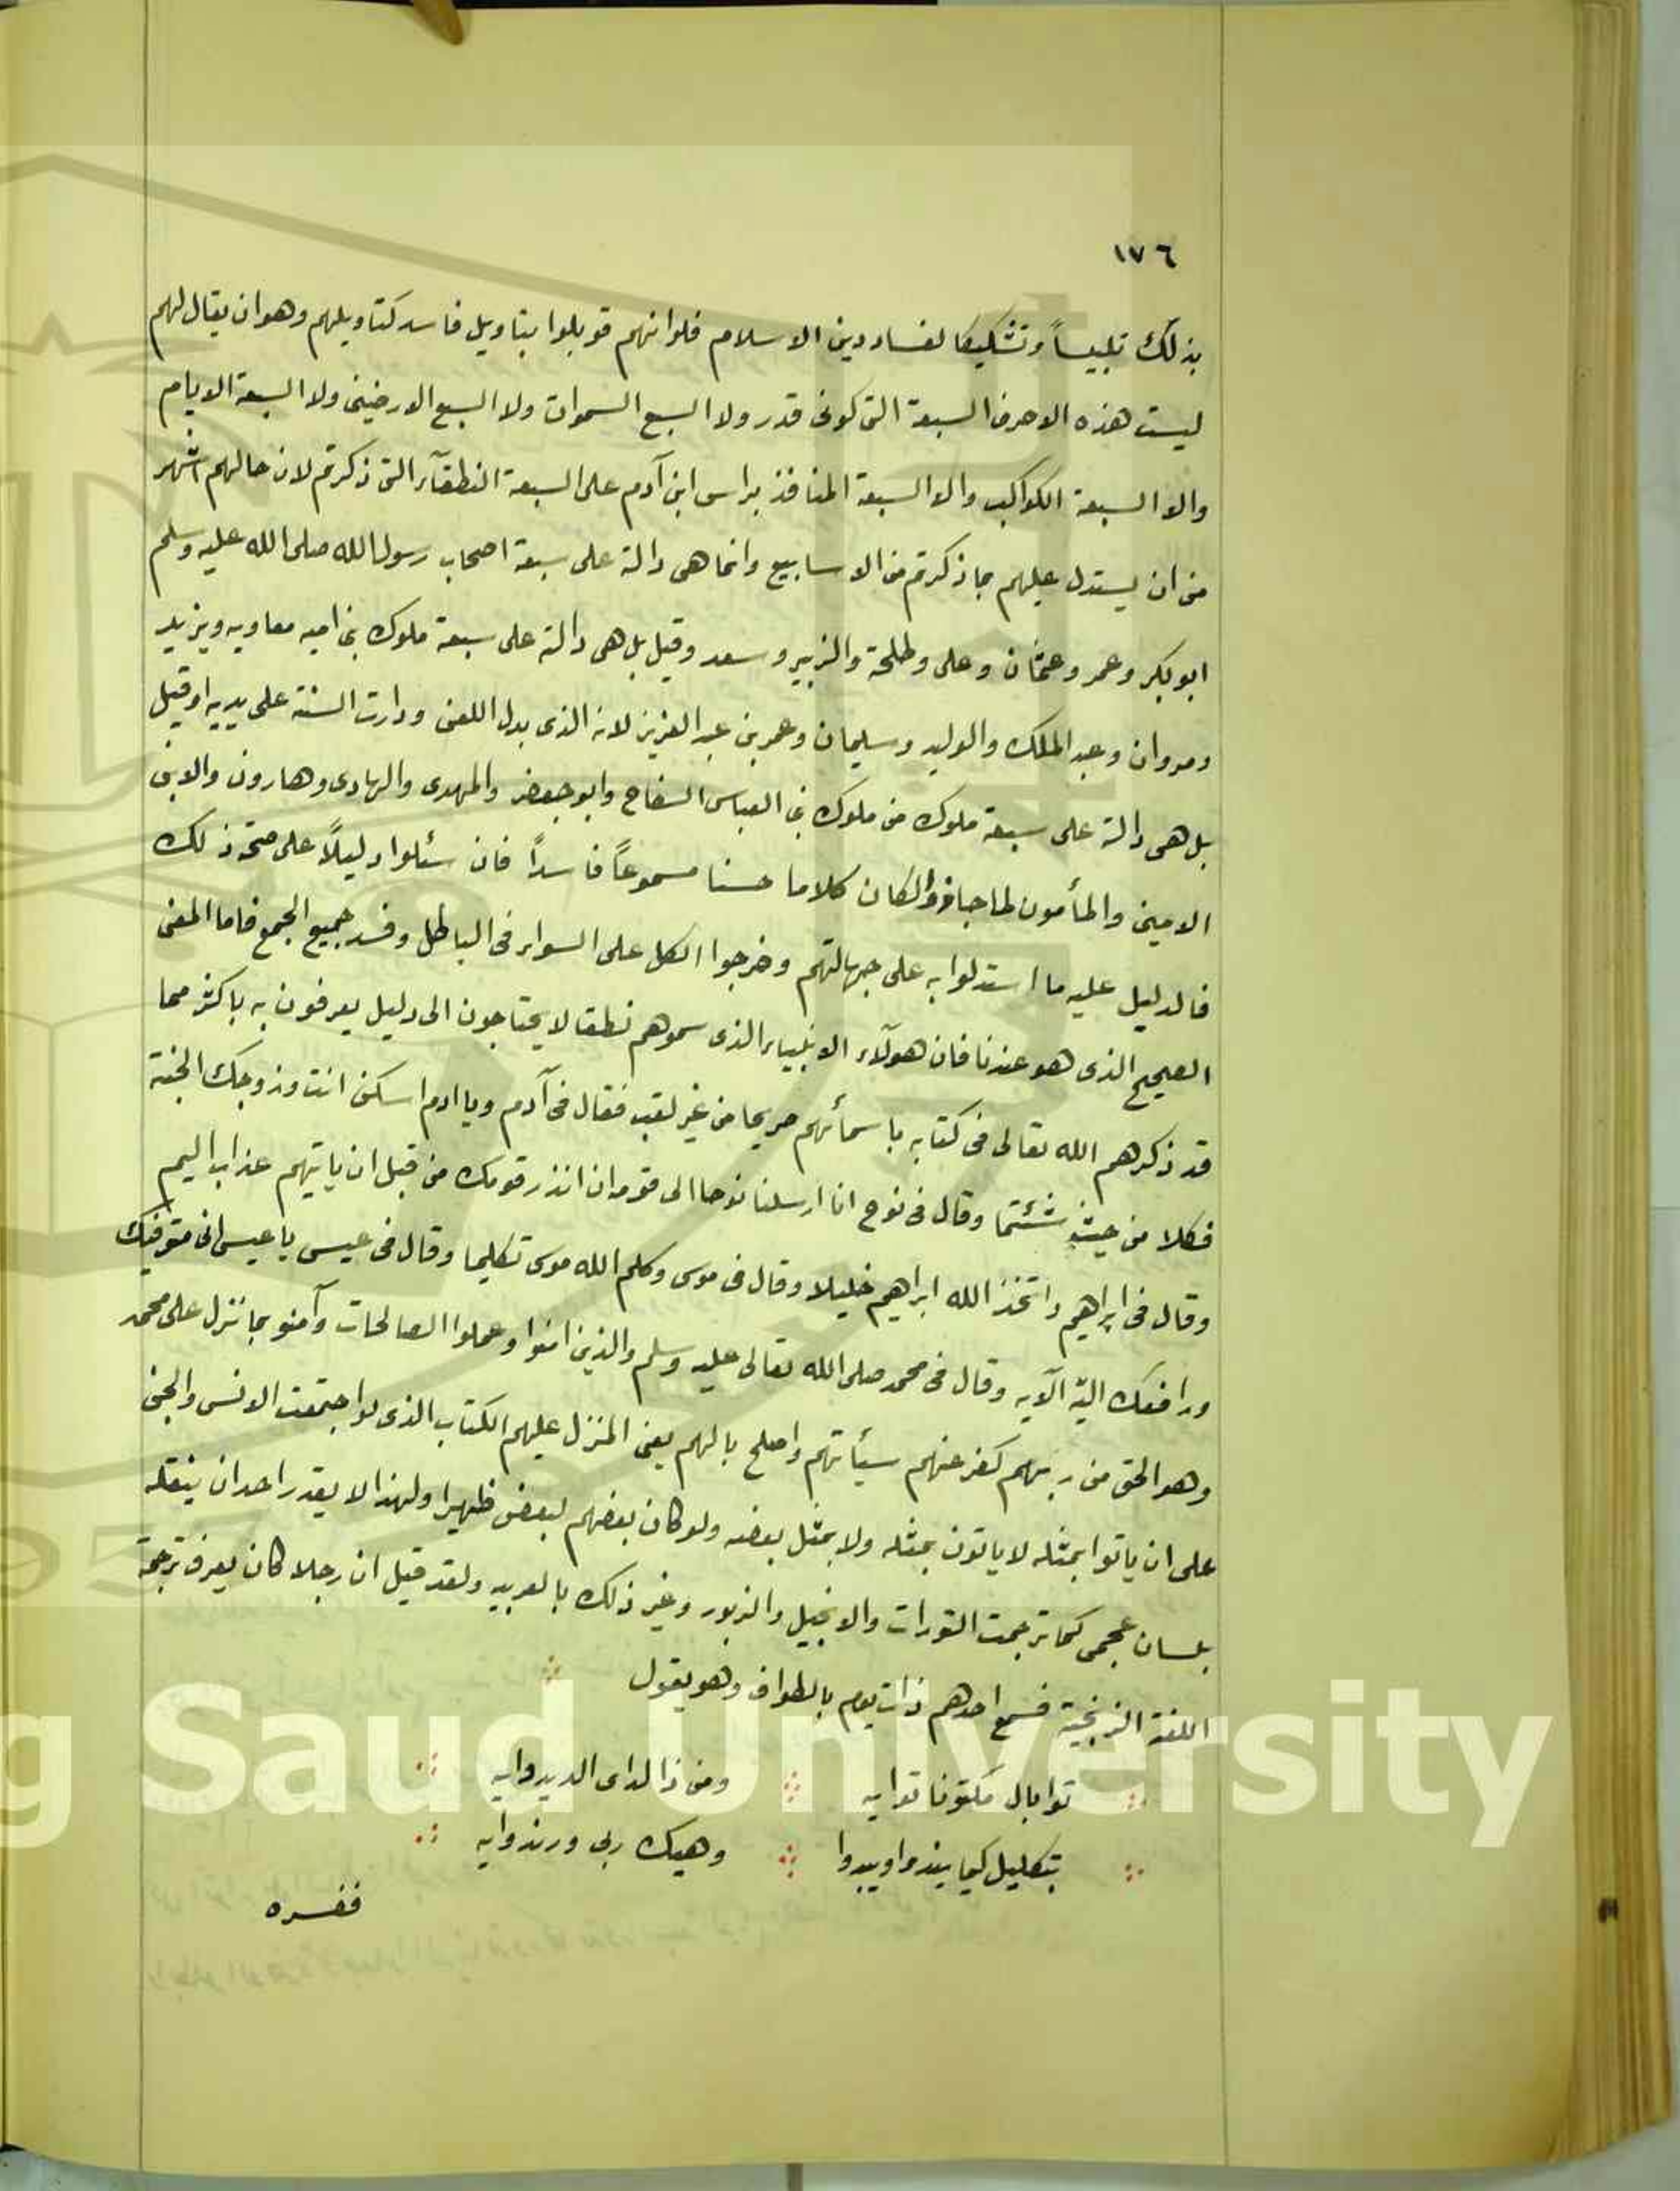 ١٧٦
بذلك تلبيساً وتشكيكا لفساد دين الاسلام فلوانهم قوبلوا بتاويل فاسد كتاويلهم وهوان يقال لهم
ليست هذه الاحرف السبعة التي كونى قدر ولا السبع السموات ولا السبع الارضين ولا السبعة الايام
والا السبعة الكواكب والا السبعة المنافذ براس ابن آدم على السبعة النطقآء التى ذكرتم لان حالهم اشهر
من ان يستدل عليهم بما ذكرتم من الاسابيع وانما هى دالة على سبعة اصحاب رسول الله صلى الله عليه وسلم
ابو بكر وعمر وعثمان وعلى وطلحة والزبير وسعد وقيل بل هى دالة على سبعة ملوك بنى اميه معاويه ويزيد
ومروان وعبد الملك والوليد وسليمان وعمر بن عبد العزيز لانه الذى بدل اللعن ودارت السنة على يديه اوقيل
بل هى دالة على سبعة ملوك من ملوك بنى العباس السفاح وابو جعفر والمهدى والهادى وهارون والابن
الامين والمأمون لما جاز والكان كلاما حسنا مسموعاً فاسداً فان سئلوا دليلاً على صحة ذلك
فالدليل عليه ما استدلوا به على جهالتهم وخرجوا الكل على السواء فى الباطل وفسد جميع الجمع فاما المعنى
الصحيح الذى هو عندنا فان هولآء الانبياء الذى سموهم نطقا لا يحتاجون الى دليل يعرفون به باكثر مما
قد ذكرهم الله تعالى فى كتابه باسمائهم صريحا من غير لقب فقال فى آدم ويا ادم اسكن انت وزوجك الجنة
فكلا من حيث شئتما وقال فى نوح انا ارسلنا نوحا الى قومه ان انذر قومك من قبل ان ياتيهم عذاب اليم
وقال فى ابراهيم واتخذ الله ابراهيم خليلا وقال فى موسى وكلم الله موسى تكليما وقال فى عيسى يا عيسى انى متوفيك
ورافعك اليّ الآيه وقال فى محمد صلى الله تعالى عليه وسلم والذين امنوا وعملوا الصالحات وآمنو بما نزل على محمد
وهو الحق من ربهم كفر عنهم سيأتهم واصلح بالهم يعنى المنزل عليهم الكتاب الذى لو اجتمعت الانس والجن
على ان ياتوا بمثله لا ياتون بمثله ولا بمثل بعضه ولو كان بعضهم لبعض ظهيرا ولهذا لا يقدر احد ان ينقله
بلسان عجمى كما ترجمت التورات والانجيل والزبور وغير ذلك بالعربيه ولقد قيل ان رجلا كان يعرف ترجمة
اللغة الزنجية فسمع احدهم ذات يوم بالطواف وهو يقول
توابال مكتونا توايه ومن ذا لداى الديدوايه
بتكليل كيا يندوا ويبدوا وهيك ربى ورندوايه
ففسره
King Saud University